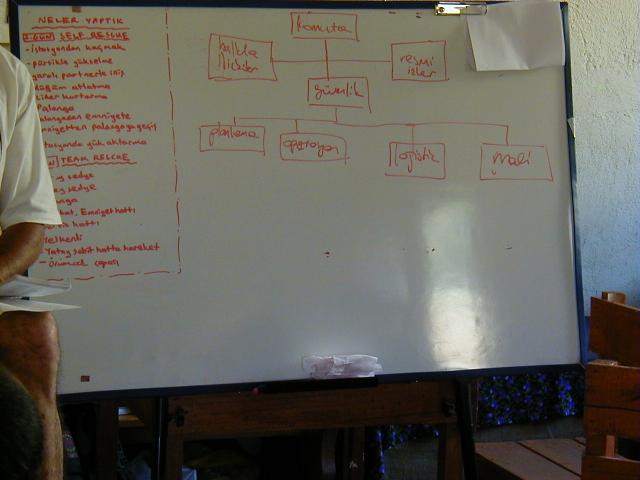 NELER YAPTIK
1.GÜN SELF RESCUE
- istasyondan kaçmak
- partikle yükselme
yaralı partnerle iniş
düğüm atlatma
Lider kurtarma
Palanga
Palangadan emniyete
emniyetten palangaya geçiş
istasyonda yük aktarma
TEAM RESCUE
sedye
sedye
Emniyet hattı
hattı
Yelkenli
- Yatay sabit hatta hareket
- Örümcek çapası
komuta
halkla
ilişkiler
resmi
işler
güvenlik
planlama
operasyon
Lojistik
mali